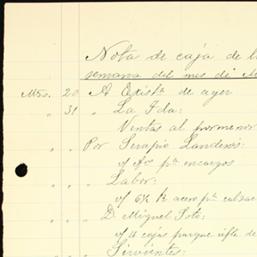 Nota de caja de la
semana del mes de
Mzo. 20 A Existª de ayer
" 31 " La Ida:
Ventas al pormenor
" " Por Serapio Landeros:
v/ fvr pª encargos
" " " Labor:
v/ 6½ k acero pª
" " " D. Miguel Soto:
v/ 4 cajas parque rifle de
" " " Sirvientes: